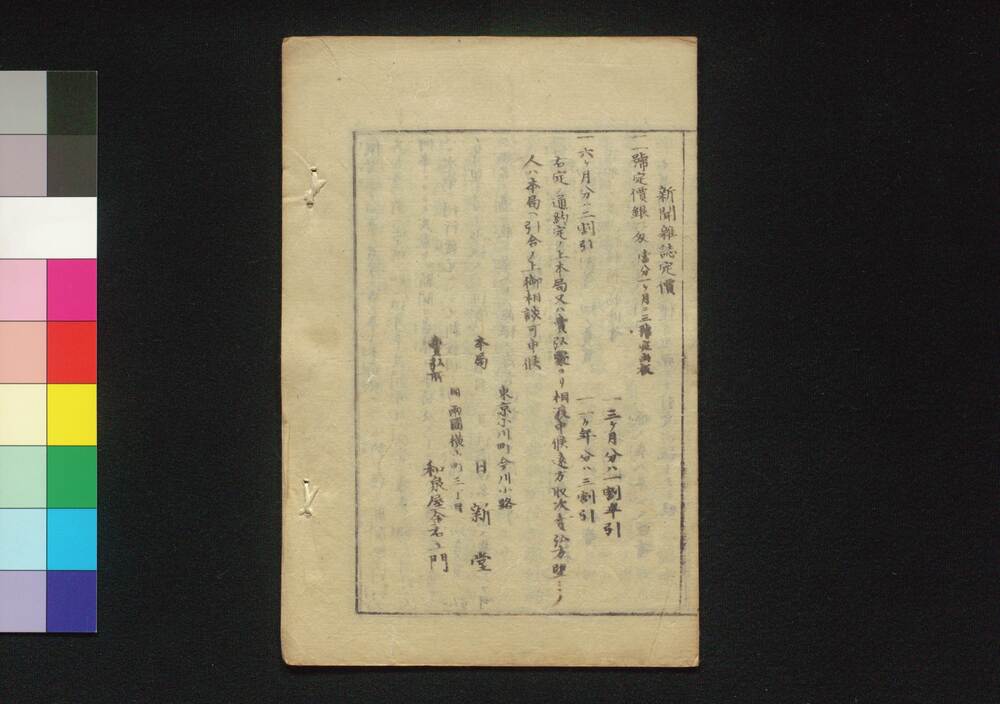 新聞雜誌定價
一一號定價銀一匁 當分一ヶ月ニ三號宛出板
一三ヶ月分ハ一割半引
一六ヶ月分ハ二割引
一一ヶ年分ハ三割引
右定ノ通約定ノ上本局又ハ賣弘所ヨリ相渡申候遠方取次賣弘方望ミノ
人ハ本局ヘ引合ノ上御相談可申候
東京小川町今川小路
本局 日新堂
同 兩國橫山町三丁目
賣弘所 和泉屋金右衛門